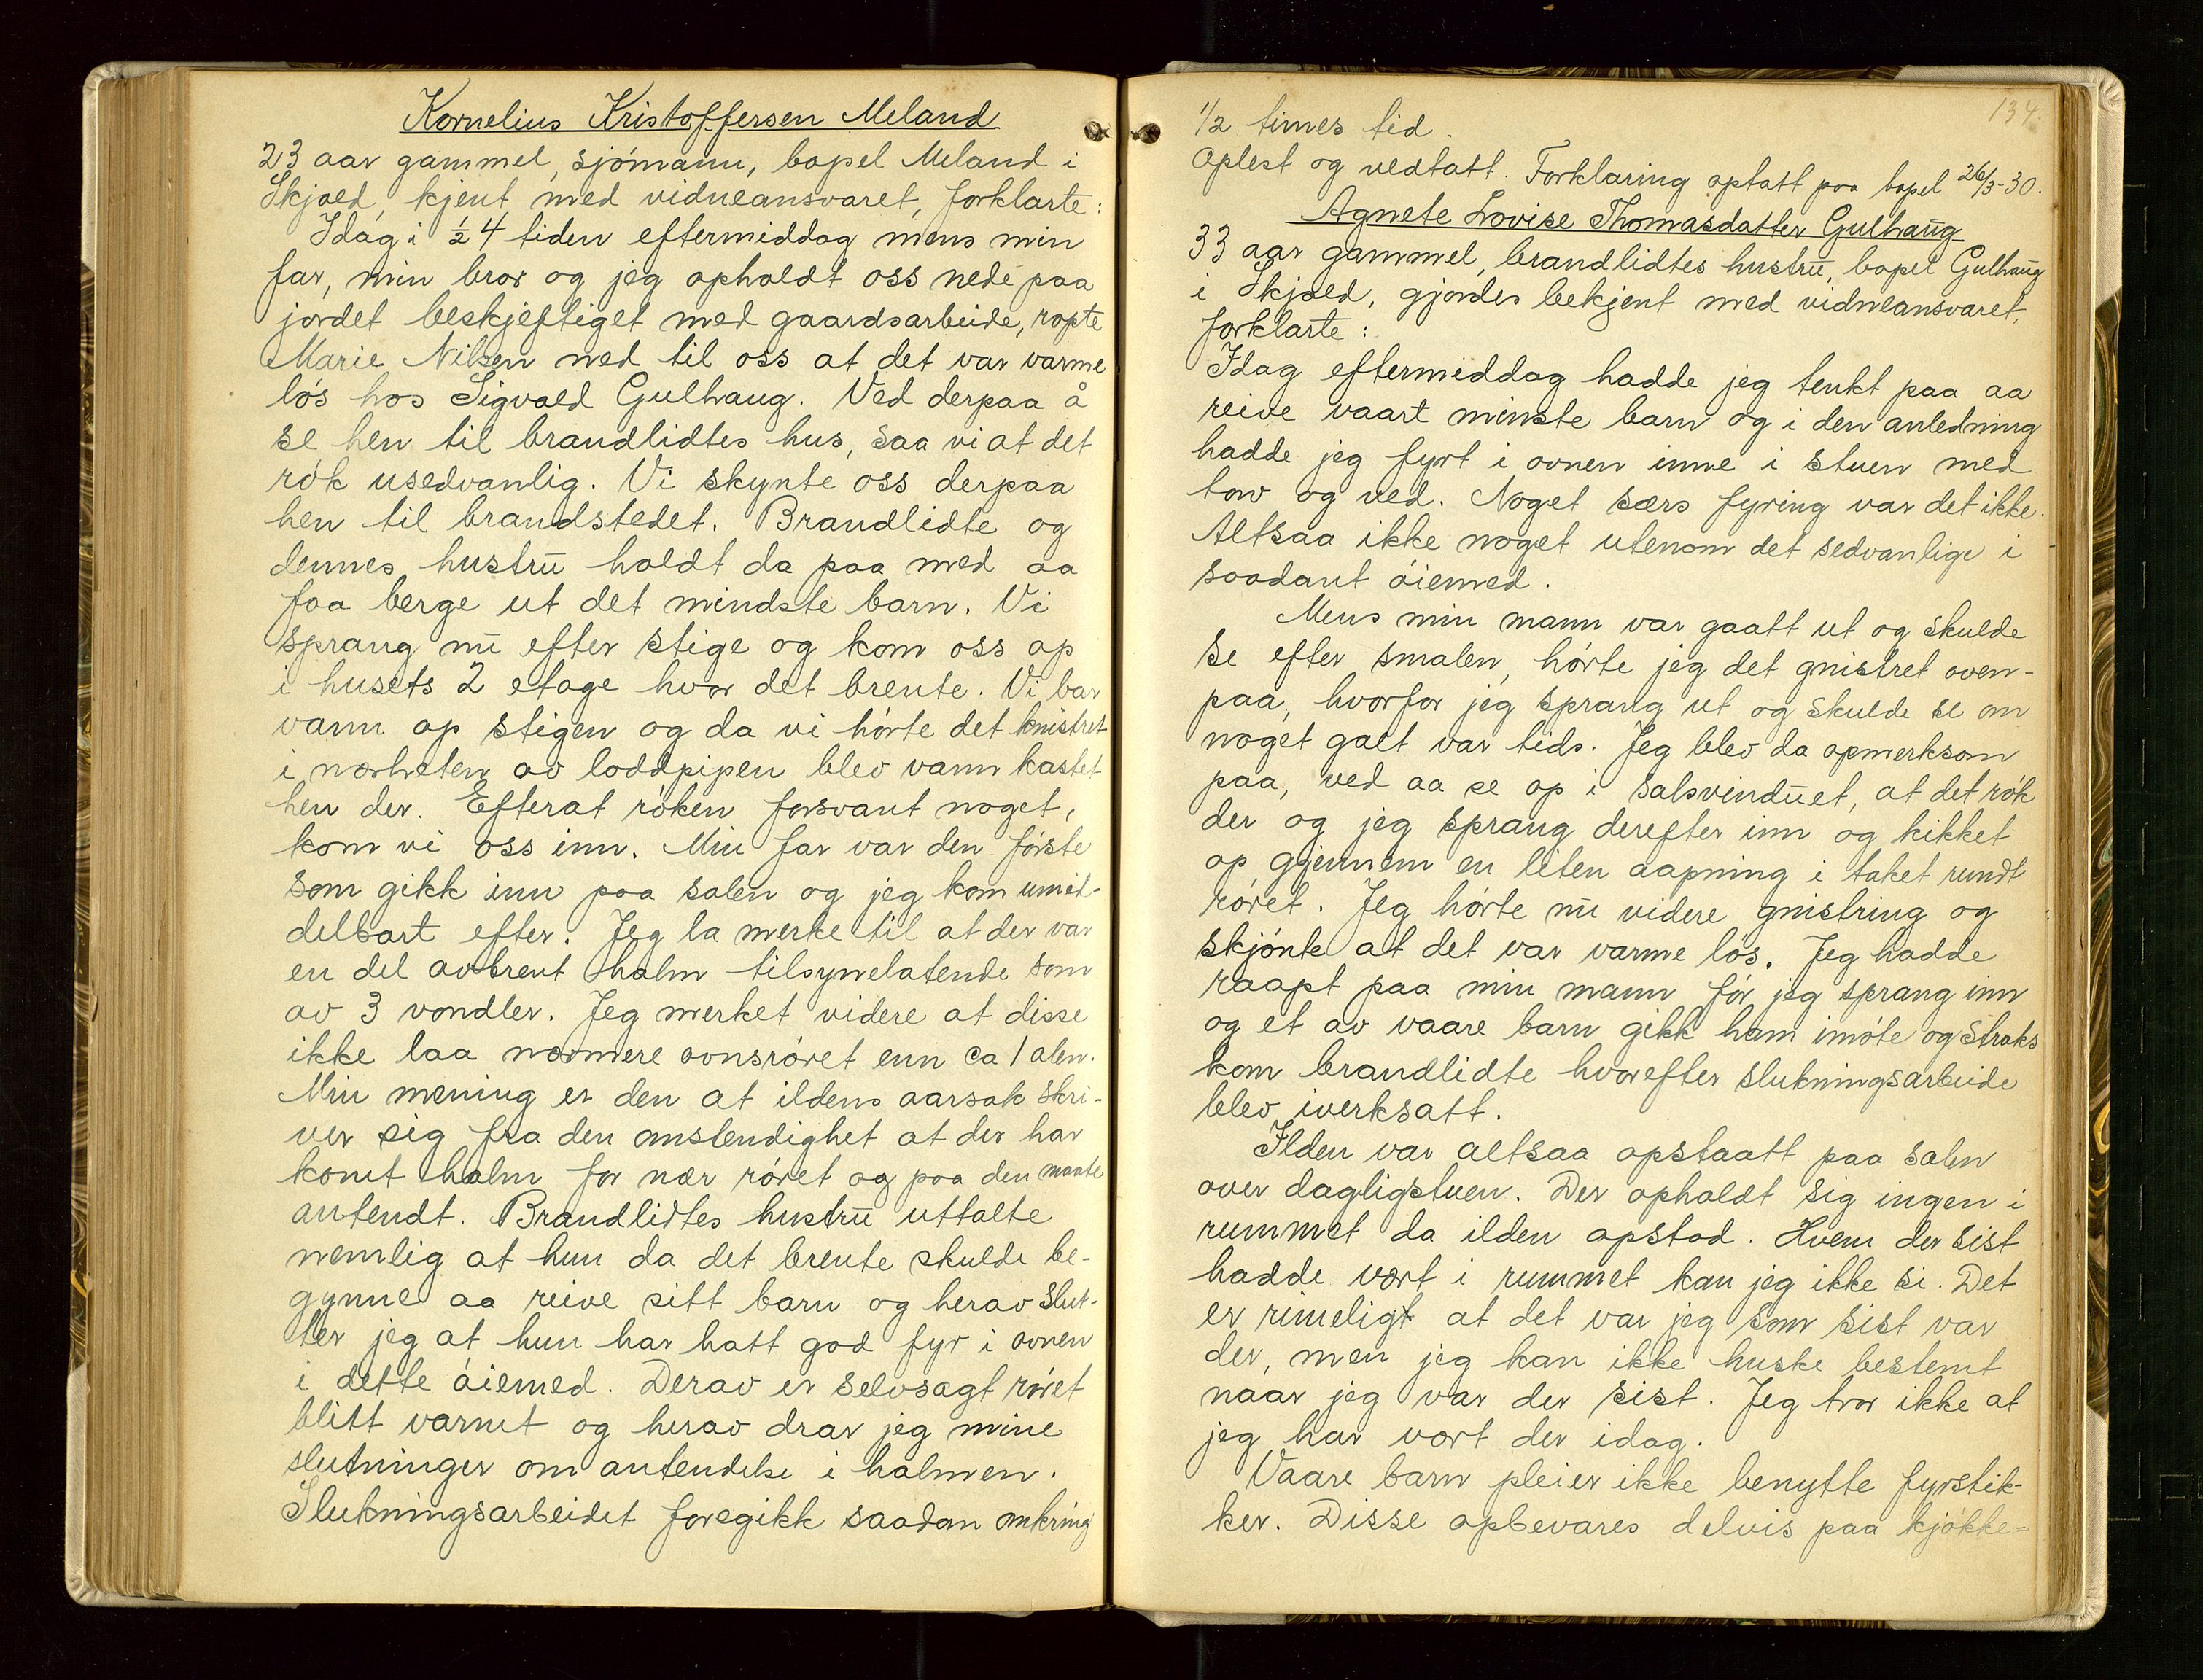 Kornelius Kristoffersen Meland
23 aar gammel, sjömann, bopel Meland i
Skjold, kjent med vidneansvaret, forklarte:
Idag i ½ 4 tiden eftermiddag mens min
far, min bror og jeg opholdt oss nede paa
jordet beskjeftiget med gaardsarbeide, ropte
Marie Nilsen ned til oss at det var varme
lös hos Sigvald Gulhaug. Ved derpaa å
se hen til brandlidtes hus, saa vi at det
rök usedvanlig. Vi skynte oss derpaa
hen til brandstedet. Brandlidte og
dennes hustru holdt da paa med aa
faa berge ut det mindste barn. Vi
sprang nu efter stige og kom oss op
i husets 2 etage hvor det brente. Vi bar
vann op stigen og da vi hörte det knistret
i nærheten av loddpipen blev vann kastet
hen der. Efterat röken forsvant noget,
kom vi oss inn. Min far var den förste
som gikk inn paa salen og jeg kom umid-
delbart efter. Jeg la merke til at der var
en del avbrent halm tilsynelatende som
av 3 vondler. Jeg merket videre at disse
ikke laa nærmere ovnsröret enn ca 1 alen.
Min mening er den at ildens aarsak skri-
ver sig fra den omstendighet at der har
komt halm for nær röret og paa den maate
antendt. Brandlidtes hustru uttalte
nemlig at hun da det brente skulde be-
gynne aa reive sitt barn og herav slut-
ter jeg at hun har hatt god fyr i ovnen
i dette öiemed. Derav er selvsagt röret
blitt varmt og herav drar jeg mine
slutninger om antendelse i halmen.
Slukningsarbeidet foregikk saadan omkring
134.
1/2 times tid.
Oplest og vedtatt. Forklaring optatt paa bopel 26/3-30.
Agnete Lovise Thomasdatter Gulhaug
33 aar gammel, brandlidtes hustru, bopel Gulhaug
i Skjold, gjordes bekjent med vidneansvaret,
forklarte:
Idag eftermiddag hadde jeg tenkt paa aa
reive vaart minste barn og i den anledning
hadde jeg fyrt i ovnen inne i stuen med
torv og ved. Noget særs fyring var det ikke.
Altsaa ikke noget utenom det sedvanlige i
saadant öiemed.
Mens min mann var gaatt ut og skulde
se efter smalen, hörte jeg det gnistret oven-
paa, hvorfor jeg sprang ut og skulde se om
noget galt var tids. Jeg blev da opmerksom
paa, ved aa se op i salsvinduet, at det rök
der og jeg sprang derefter inn og kikket
op gjennem en liten aapning i taket rundt
röret. Jeg hörte nu videre gnistring og
skjönte at det var varme lös. Jeg hadde
raapt paa min mann för jeg sprang inn
og et av vaare barn gikk ham imöte og straks
kom brandlidte hvorefter slukningsarbeide
blev iverksatt.
Ilden var altsaa opstaatt paa salen
over dagligstuen. Der opholdt sig ingen i
rummet da ilden opstod. Hvem der sist
hadde vært i rummet kan jeg ikke si. Det
er rimeligt at det var jeg som sist var
der, men jeg kan ikke huske bestemt
naar jeg var der sist. Jeg tror ikke at
jeg har vært der idag.
Vaare barn pleier ikke benytte fyrstik-
ker. Disse opbevares delvis paa kjökke-